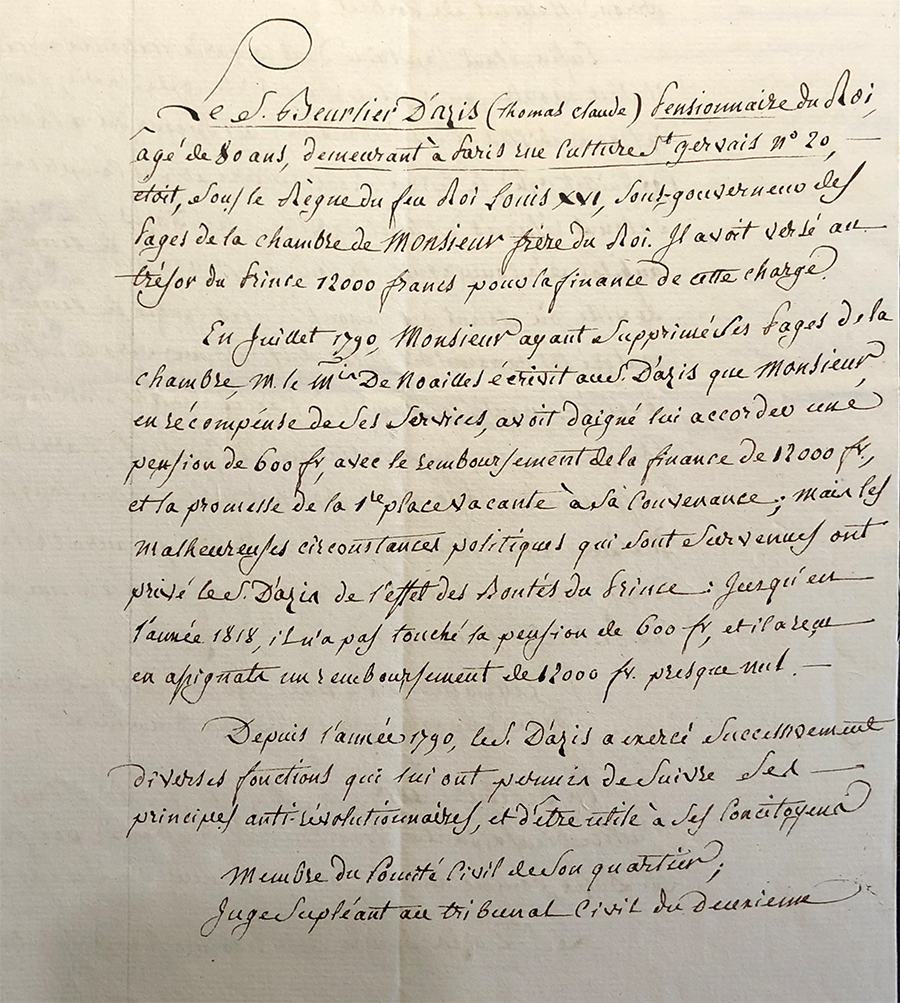 Le S. Beurlier D'azis (Thomas Claude) Pensionnaire du Roi,
âgé de 80 ans, demeurant à Paris rue Culture St gervais n° 20,
étoit, sous le Règne du feu Roi Louis XVI, sous-gouverneur des
Pages de la chambre de Monsieur frère du Roi. Il avoit versé au
trésor du Prince 12000 francs pour la finance de cette charge.
En Juillet 1790, Monsieur ayant supprimé ses Pages de la
chambre, M. le Mis De Noailles écrivit au S. D'azis que Monsieur,
en récompense de ses services, avoit daigné lui accorder une
pension de 600 fr, avec le remboursement de la finance de 12000 fr,
et la promesse de la 1re place vacante à sa convenance ; mais les
malheureuses circonstances politiques qui sont survenues ont
privé le S. D'azis de l'effet des Bontés du Prince : Jusqu'en
l'année 1818, il n'a pas touché la pension de 600 fr, et il a reçu
en assignats un remboursement de 12000 fr. presque nul.
Depuis l'année 1790, le S. D'azis a exercé successivement
diverses fonctions qui lui ont permis de suivre ses
principes anti-révolutionnaires, et d'être utile à ses Concitoyens
Membre du Comité Civil de son quartier ;
Juge supléant au tribunal Civil du deuxième